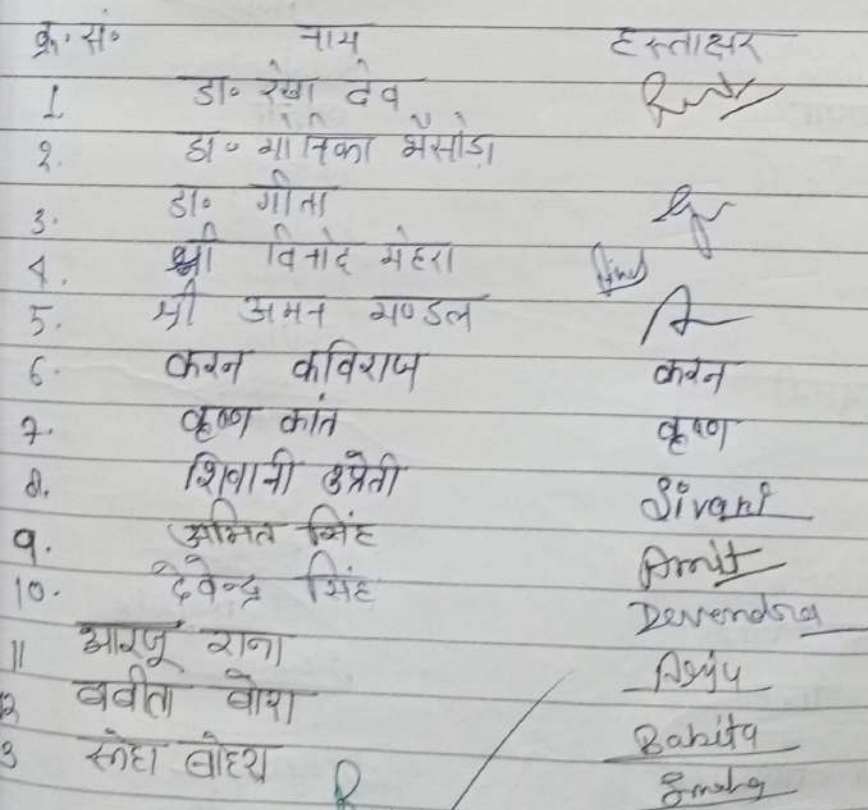 क्र० सं० नाम हस्ताक्षर
1 डा० रेखा देव
2. डा० मोनिका भैसोडा
3. डा० गीता
4. श्री विनोद मेहरा
5. श्री अमन मण्डल
6. करन कविराज करन
7. कृष्ण कांत कृष्ण
8. शिवानी उप्रेती Sivani
9. अमित सिंह Amit
10. देवेन्द्र सिंह Devendra
11 आरजू राना Arju
12 बबीता बोरा Babita
3 स्नेहा बोहरा Sneha